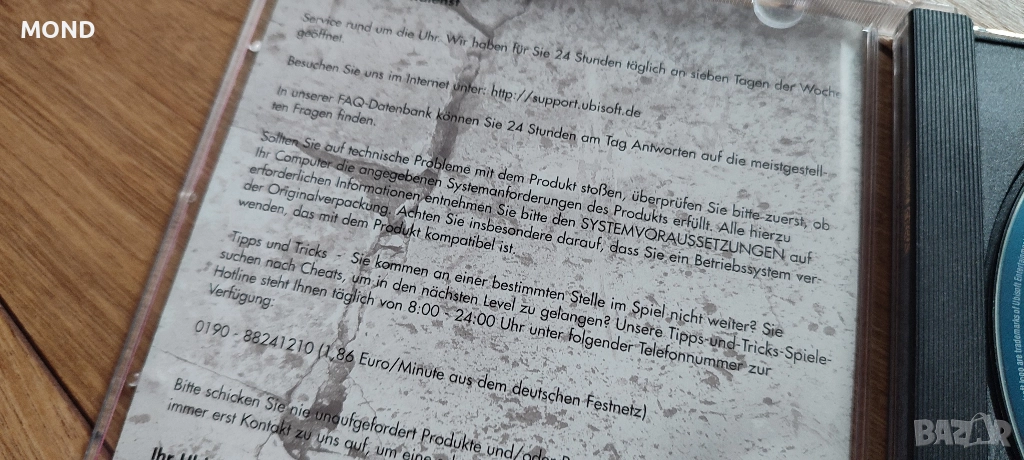 MOND
Service rund um die Uhr. Wir haben für Sie 24 Stunden täglich an sieben Tagen der Woche
geöffnet.
Besuchen Sie uns im Internet unter: http://support.ubisoft.de
In unserer FAQ-Datenbank können Sie 24 Stunden am Tag Antworten auf die meistgestell-
ten Fragen finden.
Sollten Sie auf technische Probleme mit dem Produkt stoßen, überprüfen Sie bitte zuerst, ob
Ihr Computer die angegebenen Systemanforderungen des Produkts erfüllt. Alle hierzu
erforderlichen Informationen entnehmen Sie bitte den SYSTEMVORAUSSETZUNGEN auf
der Originalverpackung. Achten Sie insbesondere darauf, dass Sie ein Betriebssystem ver-
wenden, das mit dem Produkt kompatibel ist.
Tipps und Tricks - Sie kommen an einer bestimmten Stelle im Spiel nicht weiter? Sie
suchen nach Cheats, um in den nächsten Level zu gelangen? Unsere Tipps-und-Tricks-Spiele-
Hotline steht Ihnen täglich von 8:00 - 24:00 Uhr unter folgender Telefonnummer zur
Verfügung:
0190 - 88241210 (1,86 Euro/Minute aus dem deutschen Festnetz)
Bitte schicken Sie nie unaufgefordert Produkte und/oder
immer erst Kontakt zu uns auf, um eine
Ihr
logo are trademarks of Ubisoft
BAZAR